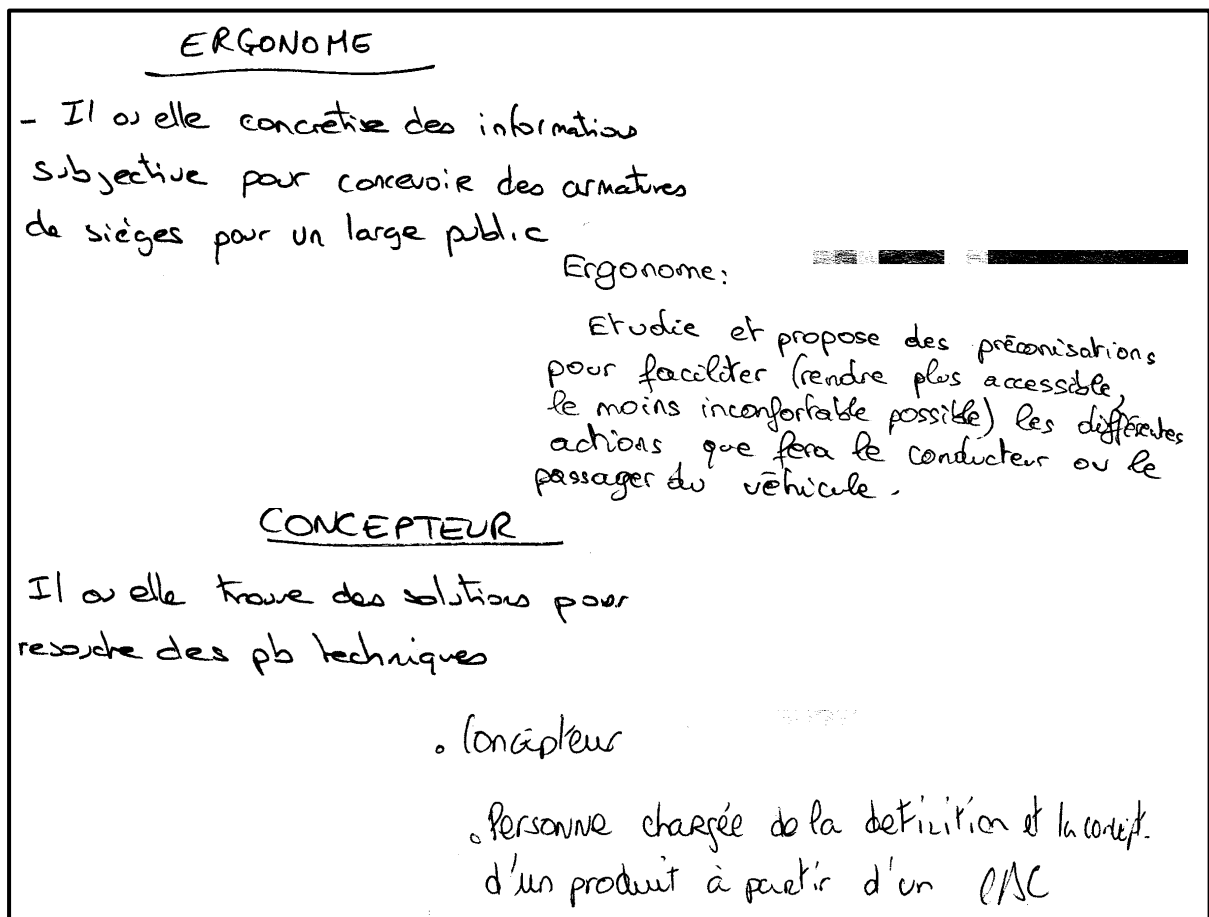 ERGONOME
- Il ou elle concrétise des informations
subjective pour concevoir des armatures
de sièges pour un large public
Ergonome:
Etudie et propose des préconisations
pour faciliter (rendre plus accessible,
le moins inconfortable possible) les différentes
actions que fera le conducteur ou le
passager du véhicule.
CONCEPTEUR
Il ou elle trouve des solutions pour
resoudre des pb techniques
• Concepteur
• Personne chargée de la definition et la concept.
d'un produit à partir d'un